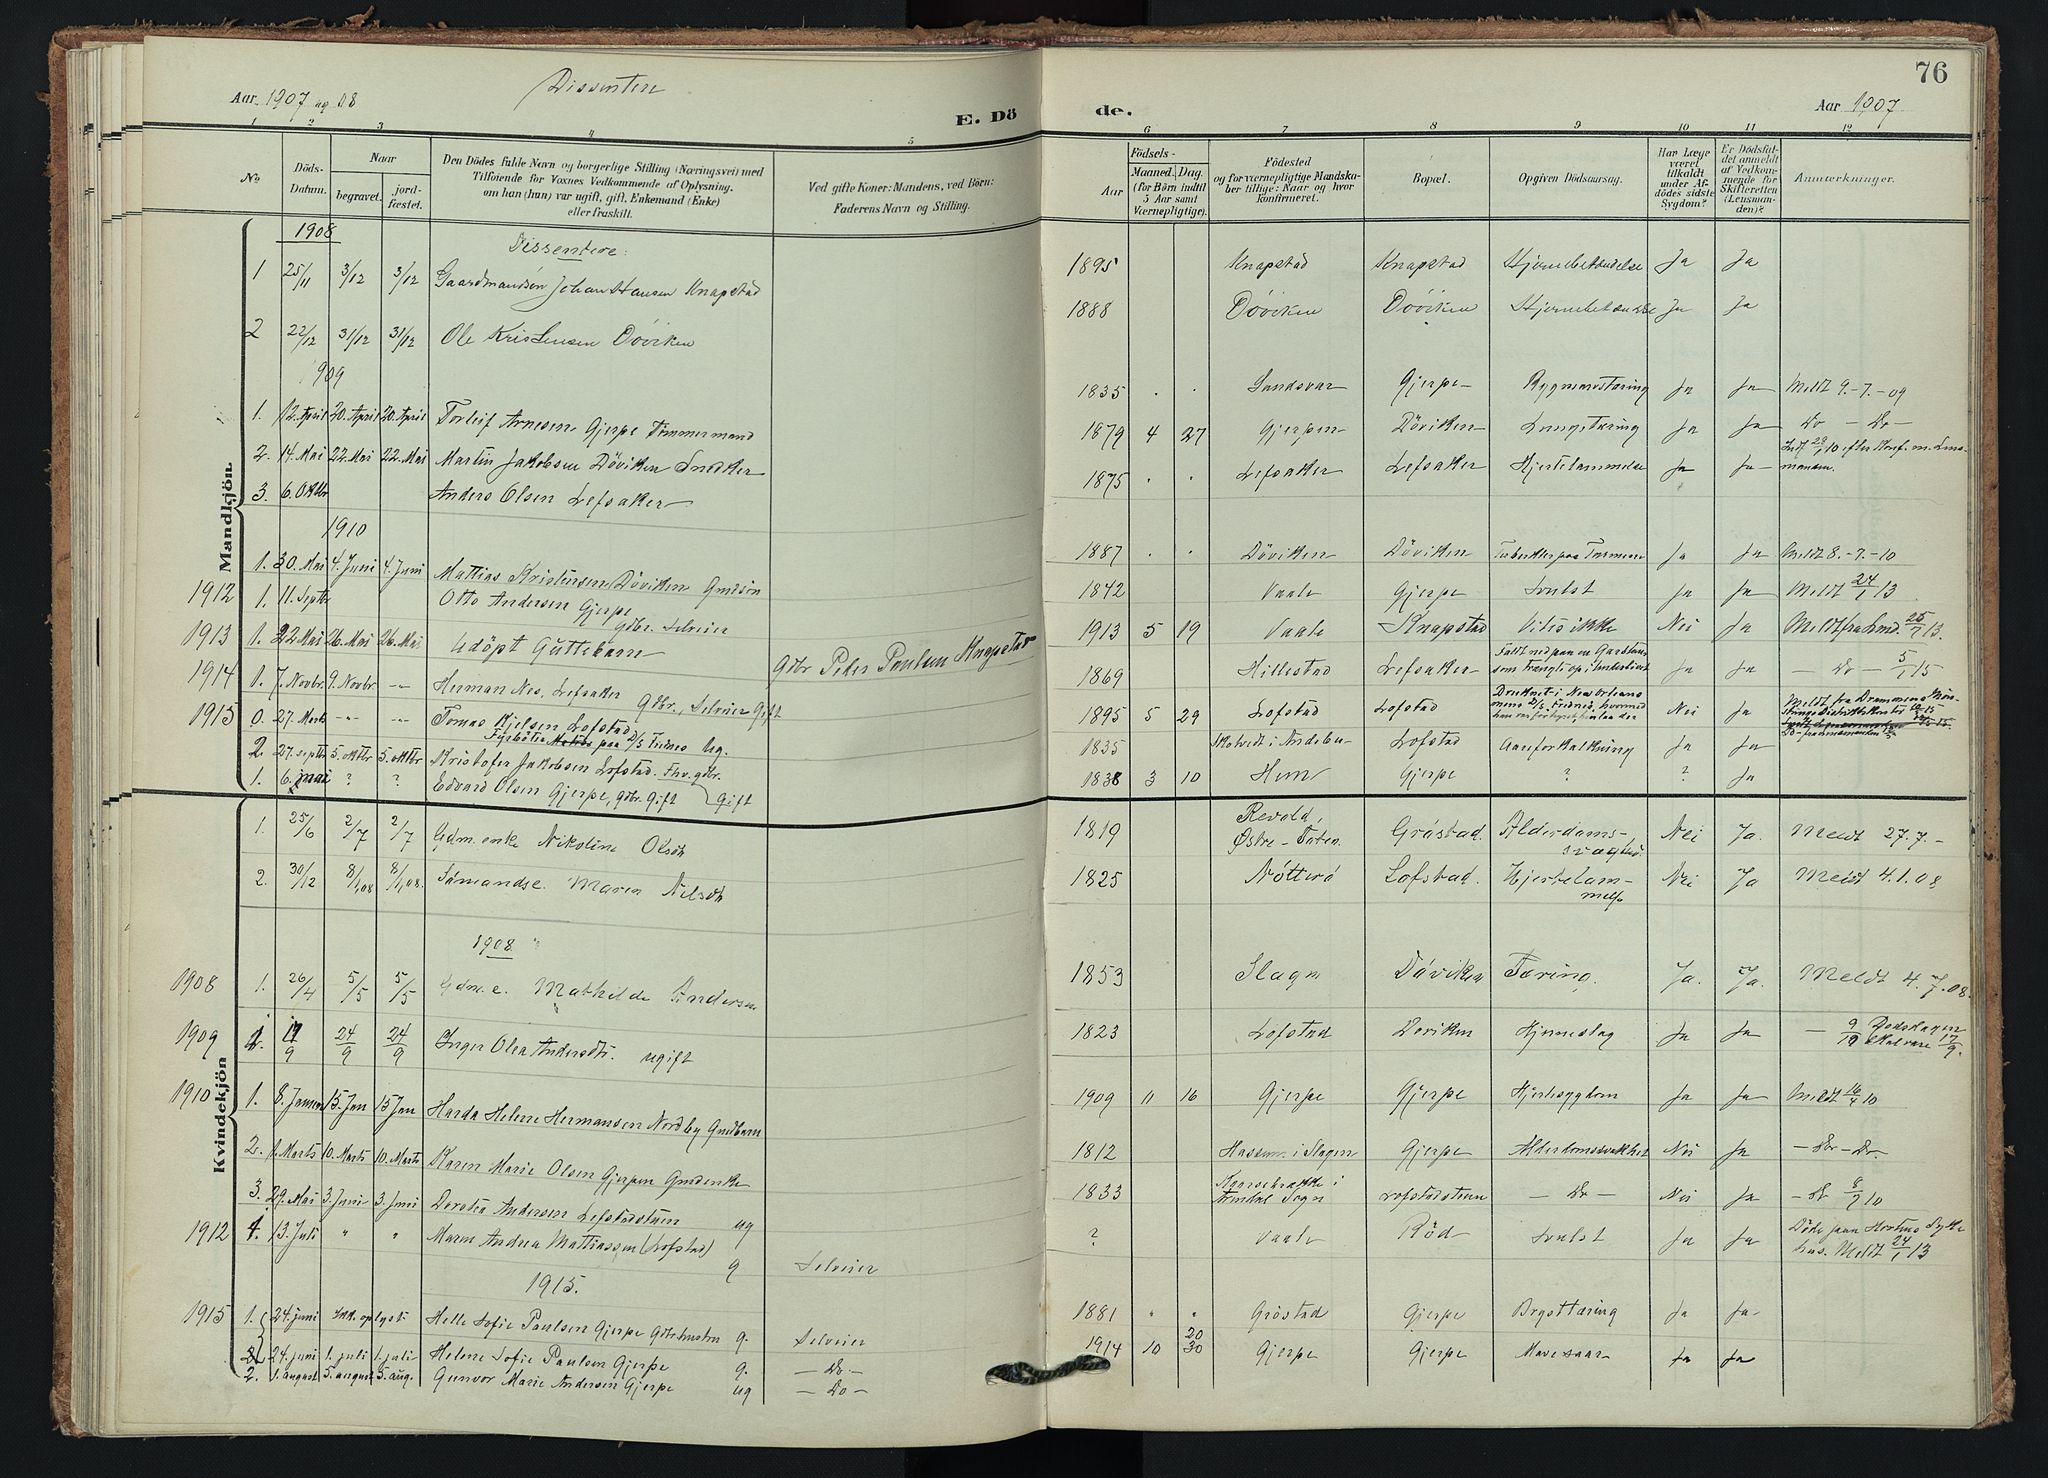 76
Aar 1907 og 08
Dissentere
E. Dö
de.
Aar 1907
1 2 3 4 5 6 7 8 9 10 11 12
No.
Döds-
Datum.
Naar
begravet.
jord-
fæstet.
Den Dödes fulde Navn og borgerlige Stilling (Næringsvei) med
Tilföiende for Voxnes Vedkommende af Oplysning,
om han (hun) var ugift, gift, Enkemand (Enke)
eller fraskilt.
Ved gifte Koner: Mandens, ved Börn:
Faderens Navn og Stilling.
Födsels-
Aar
Maaned. Dag.
(for Börn indtil
5 Aar samt
Værnepligtige).
Födested
og for værnepligtige Mandska-
ber tillige: Naar og hvor
konfirmeret.
Bopæl.
Opgiven Dödsaarsag.
Har Læge
været
tilkaldt
under Af-
dödes sidste
Sygdom?
Er Dödsfal-
det anmeldt
af Vedkom-
mende for
Skifteretten
(Lensman-
den)?
Anmærkninger.
Mandkjön
1908
Dissentere:
1 25/11 3/12 3/12 Gaardmandsön Johan Hansen Knapstad 1895 Knapstad Knapstad Hjernebetændelse Ja Ja
2 22/12 31/12 31/12 Ole Kristensen Döviken 1888 Döviken Döviken Ja Ja
1909
1. 12. April 20. April 20. April Torleif Arnesen Gjerpe Timmermand 1835 Sandsvær Gjerpe Rygmarvstæring Ja Ja Meldt 9.-7.-09
2. 14. Mai 22. Mai 22. Mai Martin Jakobsen Döviken Snedker 1879 4 27 Gjerpen Döviken Lungetæring Ja Ja Do - Do -
3. 6. Oktbr Anders Olsen Lefsaker 1875 Lefsaker Lefsaker Hjertelammelse Ja Ja
1910
1. 30. Mai 4. Juni 4. Juni Mattias Kristensen Döviken Gmdsön 1887 Döviken Döviken Ja Ja Meldt 8.-7.-10
1912 1. 11. Septbr Otto Andersen Gjerpe
Gdbr. Selveier 1842 Vaale Gjerpe Svulst Ja Ja Meldt 24/1 13
1913 1. 22. Mai 26. Mai 26. Mai Udöpt Guttebarn Gdbr Peder Paulsen Knapstad 1913 5 19 Vaale Knapstad Vites ikke Nei Ja Meldt fra Lmd. 25/7 13.
1914 1. 7. Novbr. 9. Novbr. -"- Herman Nes, Lefsaker Gdbr., Selveier Gift 1869 Hillestad Lefsaker Faldt ned paa en Gardstaur
som trængte op i Underlivet Ja Ja - Do - 5/1 15
1915 0. 27. Marts -"- -"- Tomas Kjelsen Lofstad
Fyrböter paa D/S Fridnes Ug. 1895 5 29 Lofstad Lofstad Druknet i New Orleans Nei Ja
2. 27. septbr 5. oktbr 5. oktbr Kristofer Jakobsen Lofstad. Fhv. gdbr. 1835 Skotvedt i Andebu Lofstad Aareforkalkning Ja Ja
1. 6. mai ? ? Edvard Olsen Gjerpe, Gdbr. Gift Gift 1838 3 10 Hem Gjerpe ? ? Ja
Kvindekjön
1. 25/6 2/7 2/7 Gdm. enke Nikoline Olsen 1819 Revold,
Östre-Toten Gröstad. Alderdoms-
svaghed Nei Ja. Meldt 27.7.-
2. 30/12 8/1 08. 8/1 08. Sömandse. Maren Nelsen 1825 Nötterö Lofstad. Hjertelam-
melse Nei Ja Meldt 4.1.08
1908
1908 1. 26/4 5/5 5/5 Gdm. e. Mathilde Andersen 1853 Slagn Döviken Tæring. Ja. Ja. Meldt 4.7.08.
1909 17/9 24/9 24/9 Inger Olea Andersdtr. ugift 1823 Lofstad Döviken Hjerneslag Ja Ja - 9/9 Dødsdagen
skal være 17/9.
1910 1. 8. Januar 15. Jan 15 Jan Harda Helene Hermansen Nordby Gmdbarn 1909 11 16 Gjerpe Gjerpe Hjertesygdom Ja Ja Meldt 16/4 10
2. 1. Marts 10. Marts 10. Marts Karen Marie Olsen Gjerpen Gmdenke 1812 Hassum i Slagen Gjerpe Alderdomssvakhet Nei Ja - Do - Do.
3. 29. Mai 3. Juni 3. Juni Dorotea Andersen Lofstadstuen ug 1833 Sogn Lofstadstuen - Do - Nei Ja - Do 8/7 10
1912 1. 13. Juli " " Maren Andrea Mattiassen (Lofstad) g Selveier ? Vaale Röd Svulst Ja Ja Döde paa Hortens Syke
hus. Meldt 24/1 13
1915.
1915 1. 24. juni Ikke oplyst Helle Sofie Paulsen Gjerpe g. Selveier 1881 " " Gröstad Gjerpe Brysttæring Ja Ja
24. juni 1. juli 1. juli Helene Sofie Paulsen Gjerpe g. - Do - 1914 10 20
30 Gjerpe Gjerpe Ja Ja
2. 1. august 5. august 5. aug. Gunvor Marie Andersen Gjerpe ug - Do -